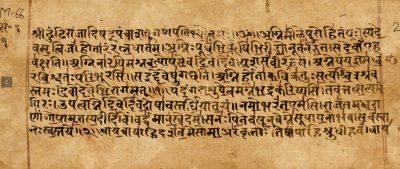 M-66
अग्निमीळेपुरोहितंयज्ञस्यदे
वमृत्विजंहोतारंरत्नधातमं॥अग्निःपूर्वेभिर्ऋषिभिरीड्योनूतनैरुत॥सदेवाँएहव
क्षति॥अग्निनारयिमश्नवत्पोषमेवदिवेदिवे॥यशसंवीरवत्तमं॥अग्नेयंयज्ञमध्व
रंविश्वतःपरिभूरसि॥सइद्देवेषुगच्छति॥अग्निर्होताकविक्रतुःसत्यश्चित्रश्रव
स्तमः॥देवोदेवेभिरागमत्॥१॥यदंगदाशुषेत्वमग्नेभद्रंकरिष्यसि॥तवेत्तत्सत्यम
गिरः॥उपत्वाग्नेदिवेदिवेदोषावस्तर्धियावयं॥नमोभरंतएमसि॥राजंतमध्वरा
णांगोपामृतस्यदीदिविं॥वर्धमानंस्वेदमे॥सनःपितेवसूनवेग्नेसूपायनोभव॥सचस्वा
नःस्वस्तये॥२॥वायवायाहिदर्शतेमेसोमाअरंकृताः॥तेषांपाहिश्रुधीहवं॥वाय